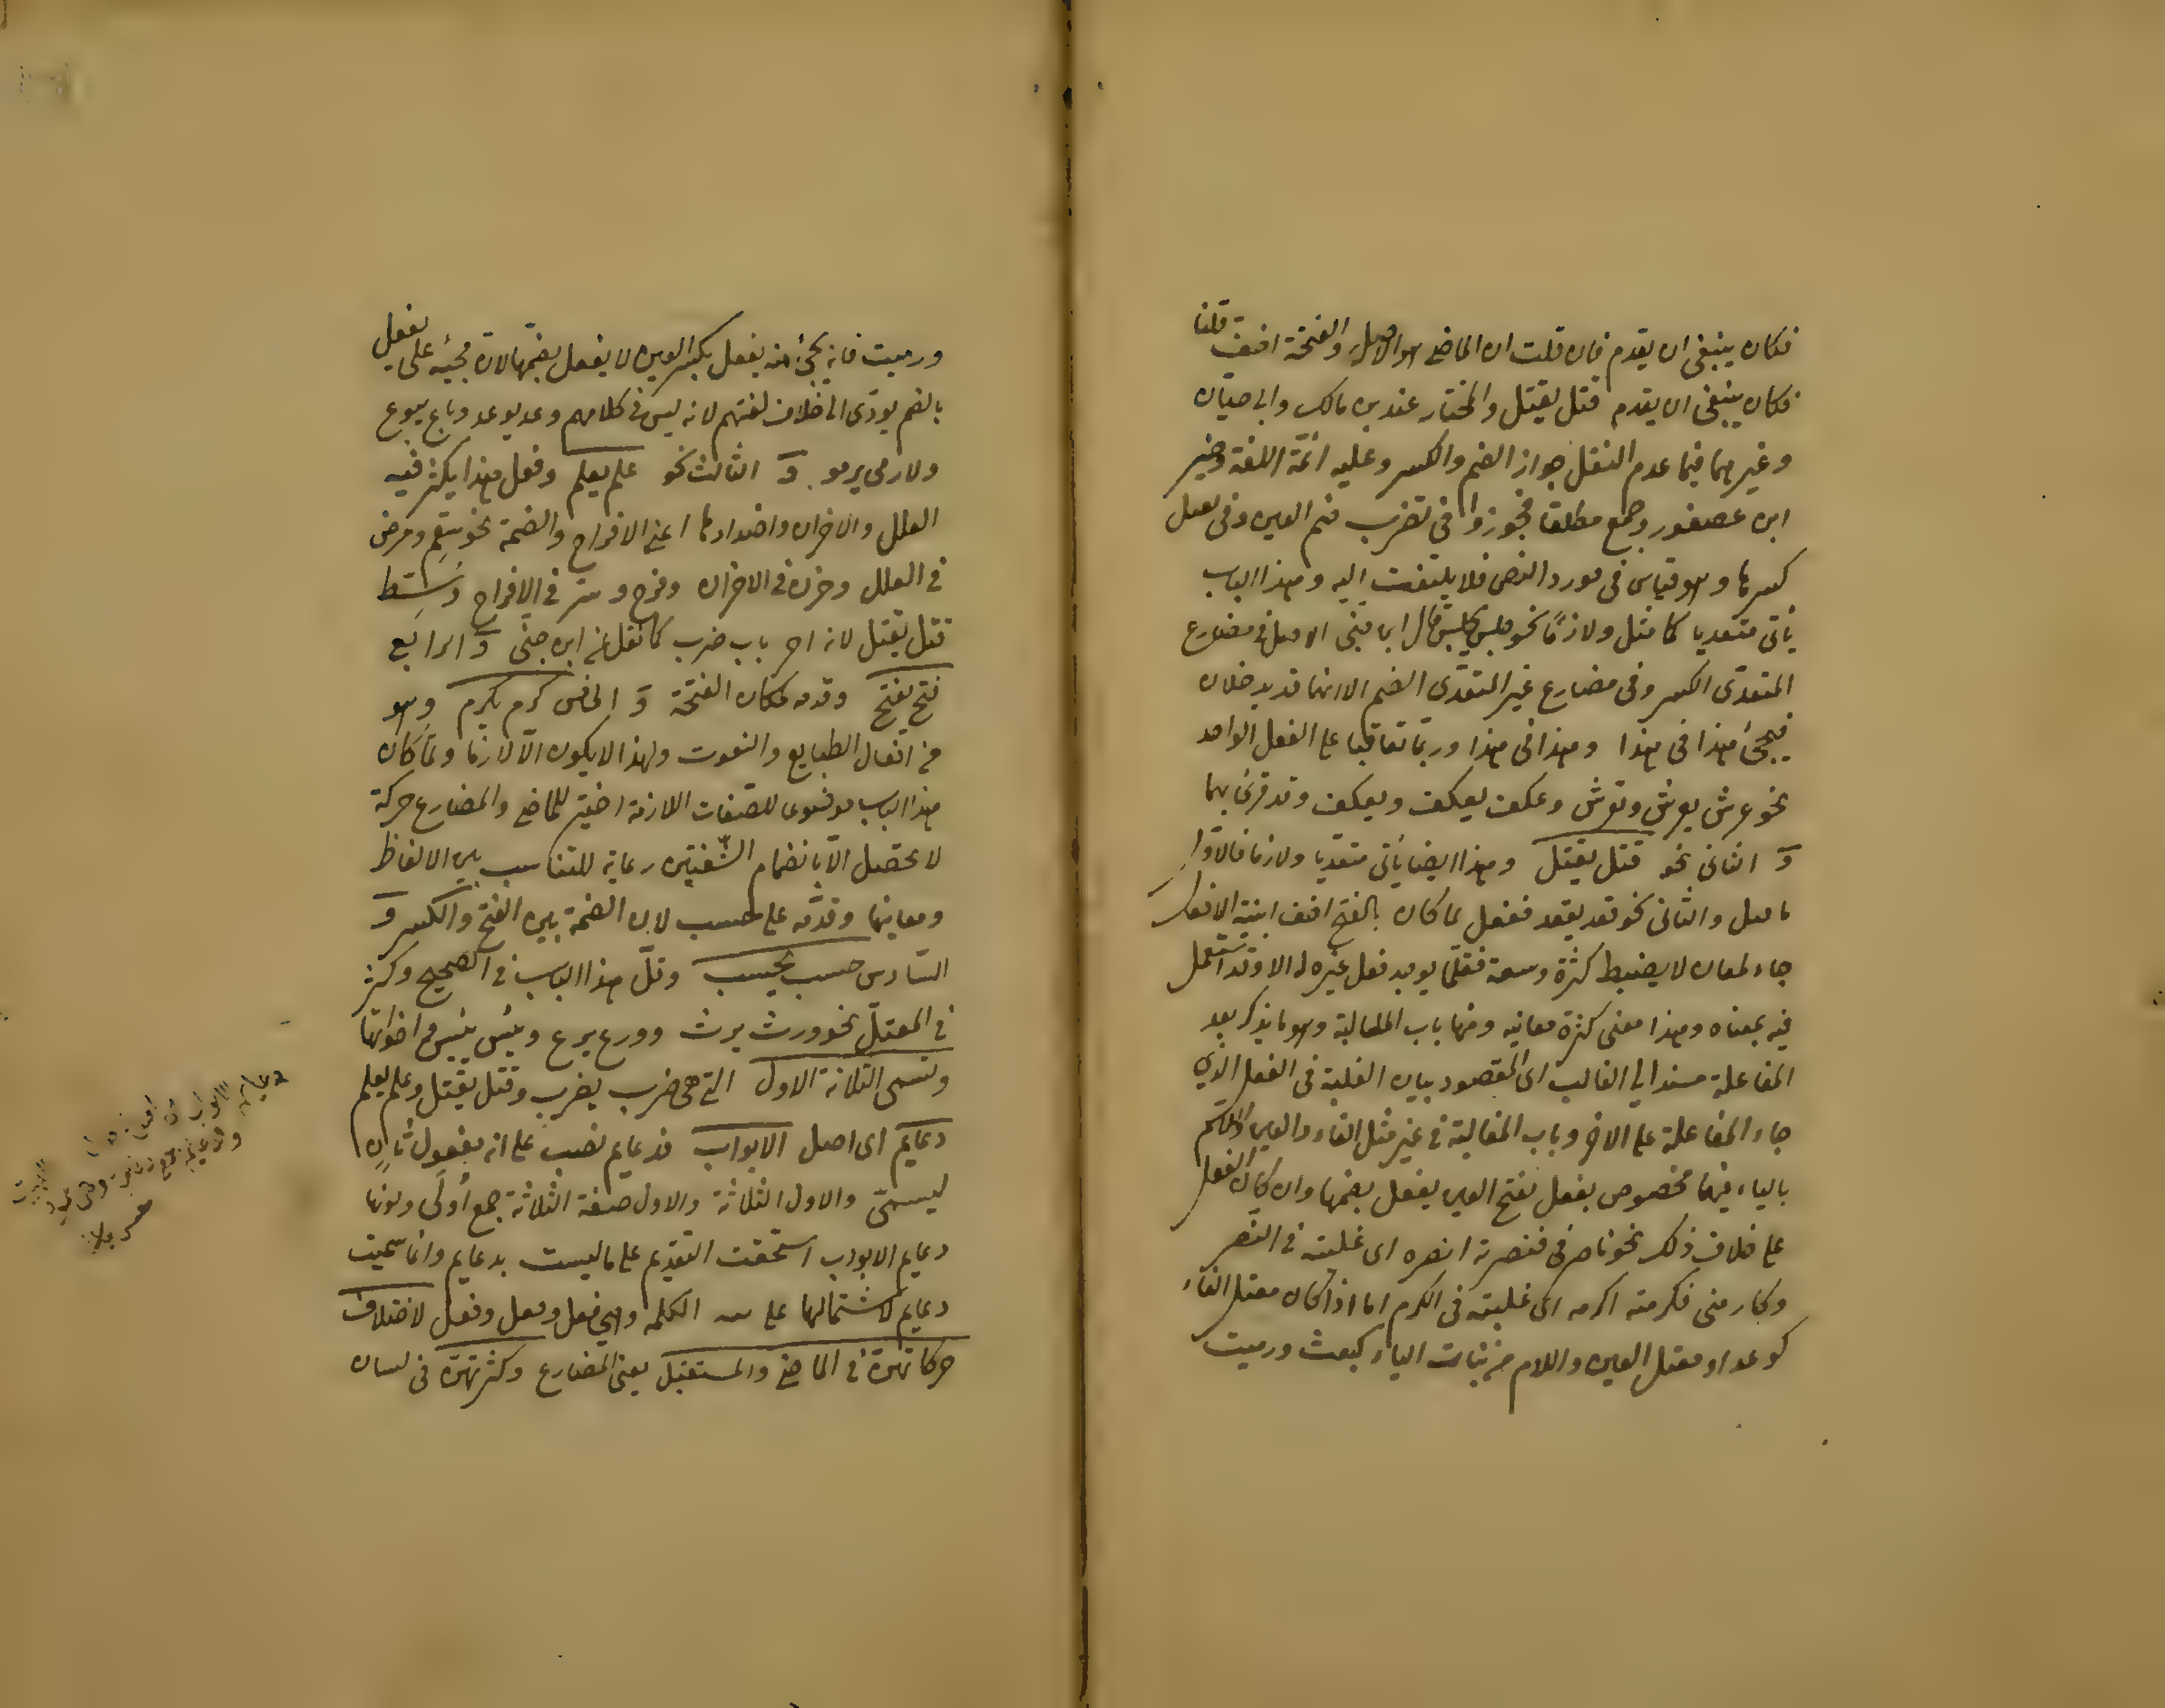 فكان ينبغى ان يقدم فان قلت ان الماضى هو الاصل والفتحة اخف قلنا
فكان ينبغى ان يقدم قتل يقتل والمختار عند بن مالك وابى حيان
وغيرهما فيما عدم النقل جواز الضم والكسر وعليه ائمة اللغة وخير
ابن عصفور وجمع مطلقا فجوزوا فى تضرب ضم العين وفى يفعل
كسرها وهو قياس فى مورد النص فلا يلتفت اليه وهذا الباب
يأتى متعديا كما مثل ولازمًا نحو جلس يجلس قال ابن جنى الاصل فى مضارع
المتعدى الكسر وفى مضارع غير المتعدى الضم الا انهما قد يدخلان
فيجئ هذا فى هذا وهذا فى هذا وربما تعاقبا على الفعل الواحد
نحو عرش يعرش ويعرش وعكف يعكف ويعكف وقد قرئ بهما
و الثانى نحو قتل يقتل وهذا ايضا يأتى متعديا ولازما فالاول
ما مثل والثانى نحو قعد يقعد ففعل لما كان بالفتح اخف ابنية الافعال
جاء لمعان لا يضبط كثرة وسعة فقلما يوجد فعل غيره الا وقد استعمل
فيه بمعناه وهذا معنى كثرة معانيه ومنها باب المغالبة وهو ما يذكر بعد
المفاعلة مسندا الى الغالب اى المقصود بيان الغلبة فى الفعل الذى
جاء المفاعلة على الاخر وباب المغالبة فى غير مثل الفاء والعين واللام
بالياء فيهما مخصوص بفعل بفتح العين يفعل بضمها وان كان الفعل
على خلاف ذلك نحو ناصرنى فنصرته انصره اى غلبته فى النصر
وكارمنى فكرمته اكرمه اى غلبته فى الكرم اما اذا كان معتل الفاء
كوعد او معتل العين واللام من بنات الياء كبعت ورميت
ورميت فانه يجئ منه يفعل بكسر العين لا يفعل بضمها لان مجيئه على يفعل
بالضم يودى الى خلاف لغتهم لانه ليس فى كلامهم وعد يوعد وباع يبوع
ولا رمى يرمو و الثالث نحو علم يعلم وفعل هذا يكثر فيه
العلل والاحزان واضدادها اعنى الافراح والضمة نحو سقم ومرض
فى العلل وحزن فى الاحزان وفرح و فى الافراح
قتل يقتل لانه اخ باب ضرب كما نقل عن ابن جنى و الرابع
فتح يفتح وقدمه لمكان الفتحة و الخامس كرم يكرم وهو
من افعال الطبايع والنعوت ولهذا لا يكون الا لازما ولما كان
هذا الباب موضوعا للصفات اللازمة اختير للماضى والمضارع حركة
لا تحصل الا بانضمام الشفتين رعاية للتناسب بين الالفاظ
ومعانيها وقدمه على حسب لان الضمة بين الفتح والكسر و
السادس حسب يحسب وقل هذا الباب فى الصحيح وكثر
فى المعتل نحو ورث يرث وورع يرع ويئس ييئس واخواتها
وتسمى الثلاثة الاول التى هى ضرب يضرب وقتل يقتل وعلم يعلم
دعايم اى اصل الابواب فدعايم نصب على انه مفعول ثان
ليسمى والاول الثلاثة والاول صفة الثلاثة جمع أولى وكونها
دعايم الابواب استحقت التقديم على ما ليست بدعايم وانما سميت
دعايم لاشتمالها على الكلمه وهى فعل وفعل وفعل لاختلاف
حركاتهن فى الماضى والمستقبل يعنى المضارع وكثرتهن فى لسان